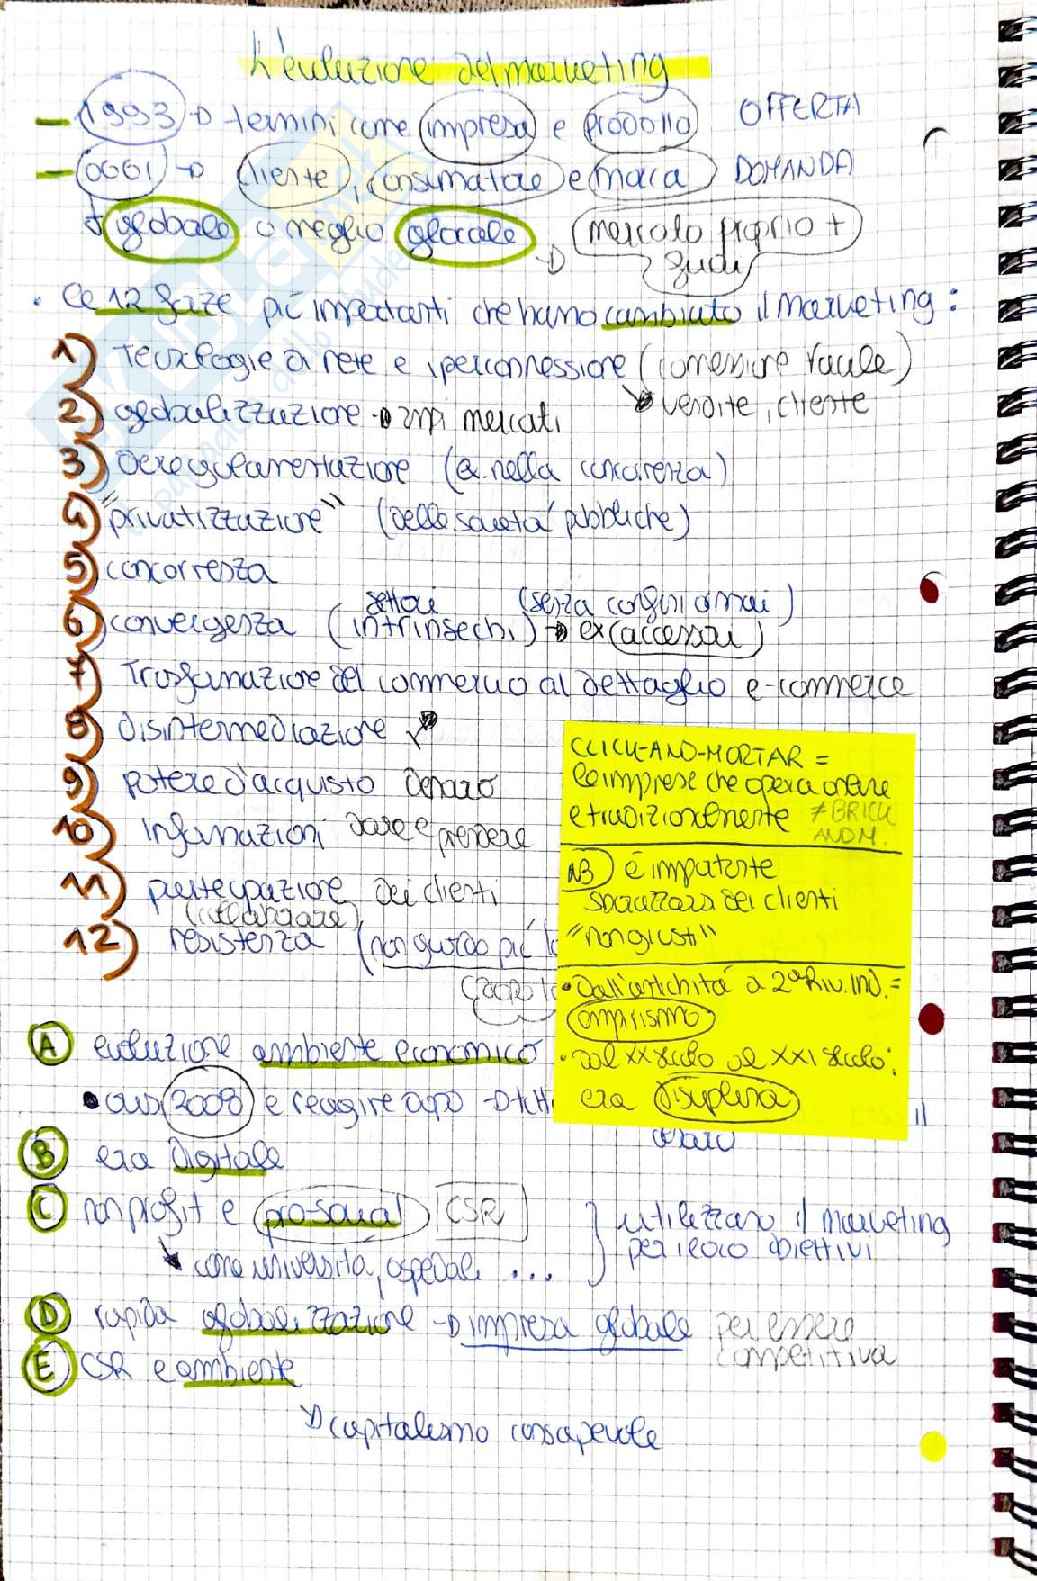 L'evoluzione del marketing
- 1993 → termini come impresa e prodotto OFFERTA
- oggi → cliente, consumatore e marca DOMANDA
+ globale o meglio glocale → mercato proprio +
fuori
. Le 12 forze più importanti che hanno cambiato il marketing:
1) Tecnologie di rete e iperconnessione (connessione facile)
→ vendite, cliente
2) globalizzazione → ampi mercati
3) deregolamentazione (es. nella concorrenza)
4) "privatizzazione" (delle società pubbliche)
5) concorrenza
6) convergenza (settori intrinsechi) → ex (accessori) (senza confini ormai)
7) Trasformazione del commercio al dettaglio e-commerce
8) disintermediazione
9) potere d'acquisto denaro
10) informazioni dare e prendere
11) partecipazione dei clienti
(collaborare)
12) resistenza (non guardo più
A evoluzione ambiente economico
• crisi 2008 e reagire dopo →
il
B era Digitale
C non profit e pro-social CSR } utilizzano il marketing
per i loro obiettivi
→ come università, ospedali ...
D rapida globalizzazione → impresa globale per essere
competitiva
E CSR e ambiente
→ capitalismo consapevole
CLICK-AND-MORTAR =
le imprese che opera online
e tradizionalmente ≠ BRICK
AND M.
NB è importante
sbarazzarsi dei clienti
"non giusti"
• Dall'antichità a 2ª Riv. IND. =
empirismo
• dal XX secolo al XXI secolo:
era disciplina